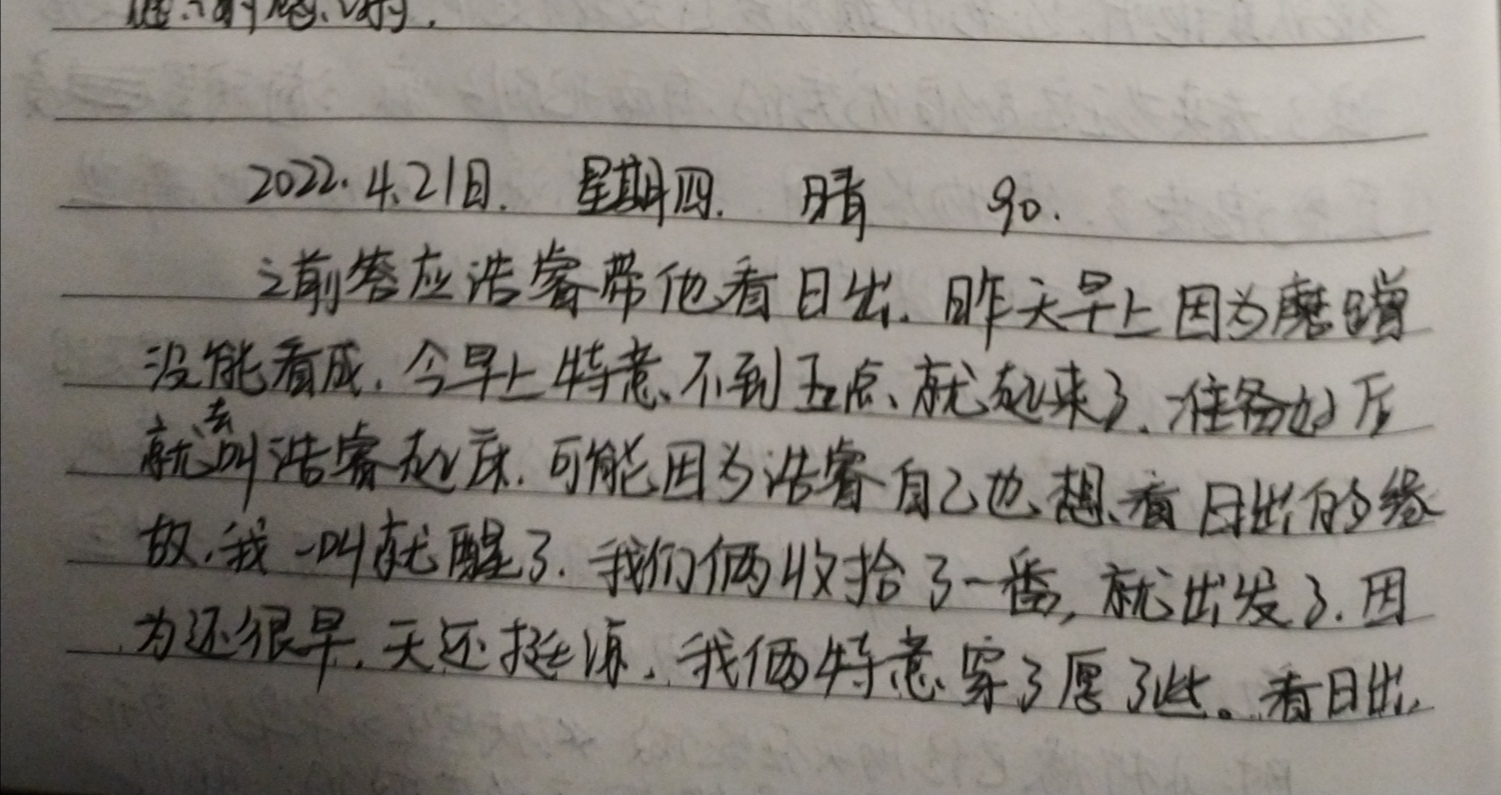 2022.4.21日. 星期四. 晴 90.
之前答应浩睿带他看日出.昨天早上因为磨蹭
没能看成.今早上特意不到五点就起来了.准备好后
就去叫浩睿起床.可能因为浩睿自己也想看日出的缘
故.我一叫就醒了.我们俩收拾了一番,就出发了.因
为还很早.天还挺凉.我俩特意穿了厚了些。看日出,